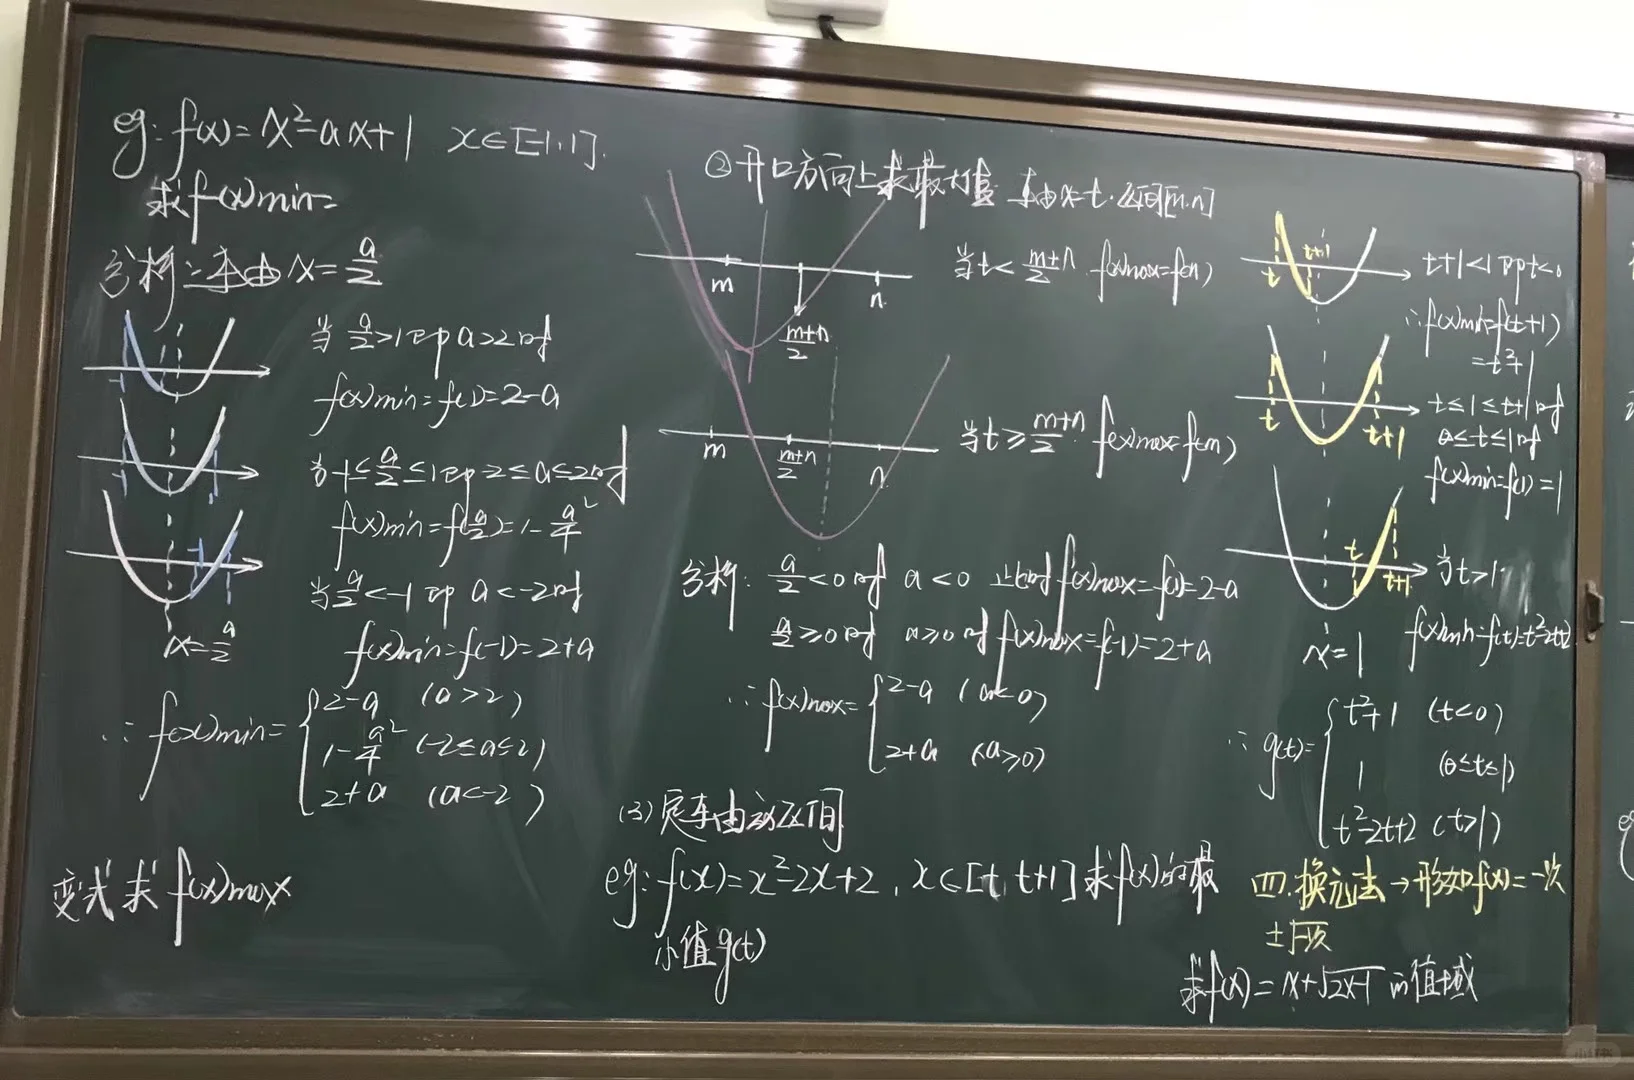 eg: f(x)=x²-ax+1 x∈[-1,1].
求f(x)min=
分析:轴 x=a/2
当 a/2>1 即 a>2时
f(x)min=f(1)=2-a
当-1≤a/2≤1即-2≤a≤2时
f(x)min=f(a/2)=1-a²/4
当a/2<-1 即 a<-2时
f(x)min=f(-1)=2+a
x=a/2
∴ f(x)min={2-a (a>2)
1-a²/4 (-2≤a≤2)
2+a (a<-2)
变式 求 f(x)max
②开口方向上求最大值 轴x=t.区间[m,n]
m
m+n/2
n
当t<m+n/2 f(x)max=f(n)
m
m+n/2
n
当t≥m+n/2 f(x)max=f(m)
分析: a/2<0时 a<0 此时f(x)max=f(1)=2-a
a/2≥0时 a≥0时f(x)max=f(-1)=2+a
∴ f(x)max={2-a (a<0)
2+a (a≥0)
(3)定轴动区间
eg: f(x)=x²-2x+2, x∈[t,t+1]求f(x)的最
小值g(t)
t
t+1
t+1<1即t<0
∴f(x)min=f(t+1)
=t²+1
t
t+1
t≤1≤t+1时
0≤t≤1时
f(x)min=f(1)=1
t
t+1
当t>1
x=1
f(x)min=f(t)=t²-2t+2
∴ g(t)={t²+1 (t<0)
1 (0≤t≤1)
t²-2t+2 (t>1)
四.换元法→形如f(x)=一次
±√一次
求f(x)=x+√2x-1 的值域